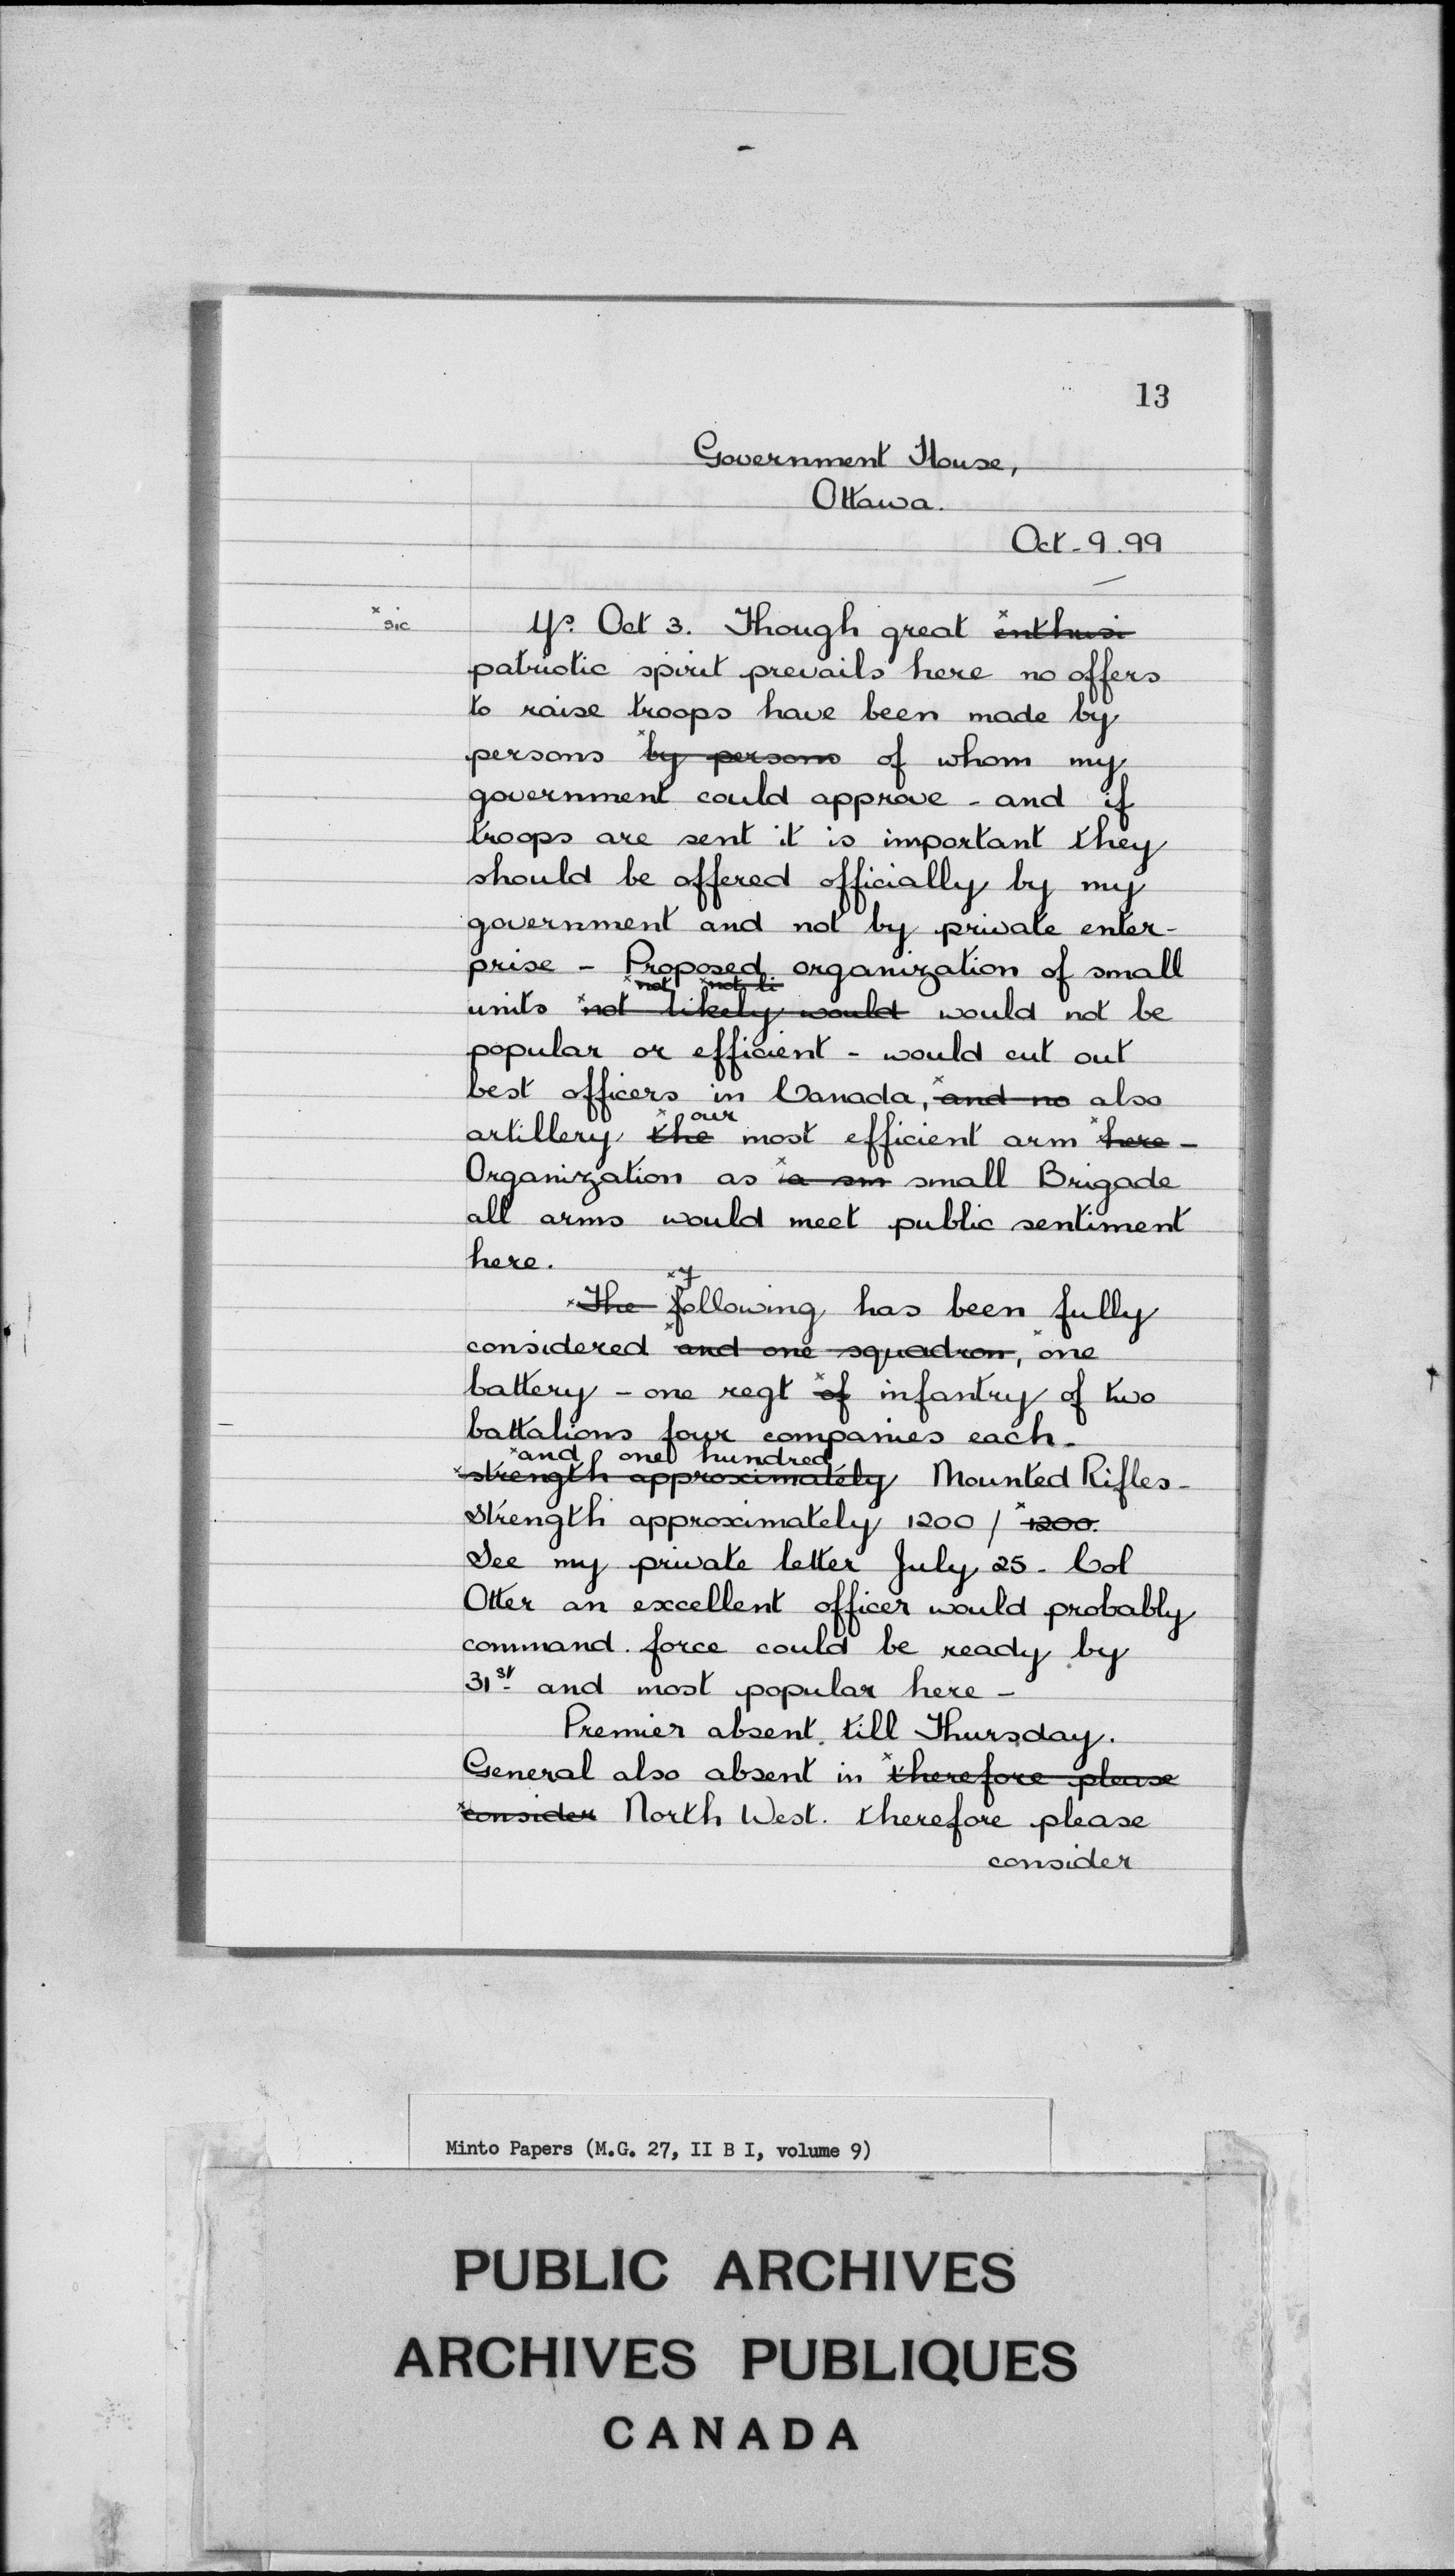 13
Government House,
Ottawa.
Oct - 9 . 99
x sic
Yrs. Oct 3. Though great x enthusi
patriotic spirit prevails here no offers
to raise troops have been made by
persons x by persons of whom my
government could approve - and if
troops are sent it is important they
should be offered officially by my
government and not by private enter-
prise - Proposed organization of small
x not x not li
units x not likely would would not be
popular or efficient - would cut out
best officers in Canada, x and no also
our
artillery x the most efficient arm x here -
Organization as x a sm small Brigade
all arms would meet public sentiment
here.
x The x following has been fully
considered x and one squadron, x one
battery - one regt x of infantry of two
battalions four companies each -
x and one hundred
x strength approximately Mounted Rifles -
Strength approximately 1200 / x 1200.
See my private letter July 25 - Col
Otter an excellent officer would probably
command. force could be ready by
31st and most popular here -
Premier absent. till Thursday.
General also absent in x therefore please
x consider North West. therefore please
consider
Minto Papers (M.G. 27, II B I, volume 9)
PUBLIC ARCHIVES
ARCHIVES PUBLIQUES
CANADA